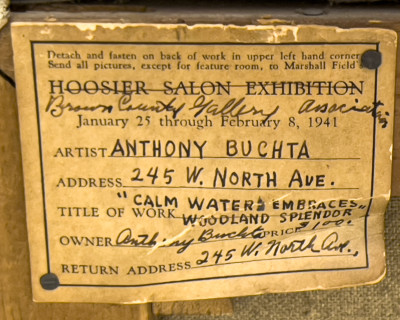 Detach and fasten on back of work in upper left hand corner
Send all pictures, except for feature room, to Marshall Field
HOOSIER SALON EXHIBITION
Brown County Gallery Association
January 25 through February 8, 1941
ARTIST ANTHONY BUCHTA
ADDRESS 245 W. NORTH AVE.
"CALM WATERS EMBRACES
TITLE OF WORK WOODLAND SPLENDOR" PRICE $100.
OWNER Anthony Buchta
RETURN ADDRESS 245 W. North Ave.,